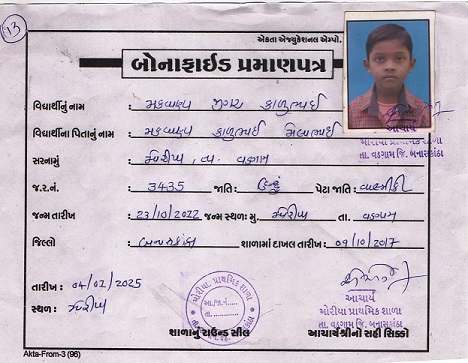 13
એકતા એજ્યુકેશનલ એમ્પો.
બોનાફાઈડ પ્રમાણપત્ર
વિદ્યાર્થીનું નામ : મકવાણા જીગર કાળુભાઈ
વિદ્યાર્થીના પિતાનું નામ : મકવાણા કાળુભાઈ
આચાર્ય
મોરીયા પ્રાથમિક શાળા
તા. વડગામ જિ. બનાસકાંઠા
સરનામું : મોરીયા, તા. વડગામ
જ.ર.નં. : 3435 જાતિ : હિન્દુ પેટા જાતિ : વાલ્મીકી
જન્મ તારીખ : 23/10/2022 જન્મ સ્થળ: મુ. મોરીયા તા. વડગામ
જિલ્લો : બનાસકાંઠા શાળામાં દાખલ તારીખ : 09/10/2017
તારીખ : 04/02/2025
સ્થળ : મોરીયા
મોરીયા પ્રાથમિક શાળા
આ./જ.નં.
તા.
આચાર્ય
મોરીયા પ્રાથમિક શાળા
તા. વડગામ જિ. બનાસકાંઠા
શાળાનું રાઉન્ડ સીલ
આચાર્યશ્રીનો સહી સિક્કો
Akta-From-3 (96)